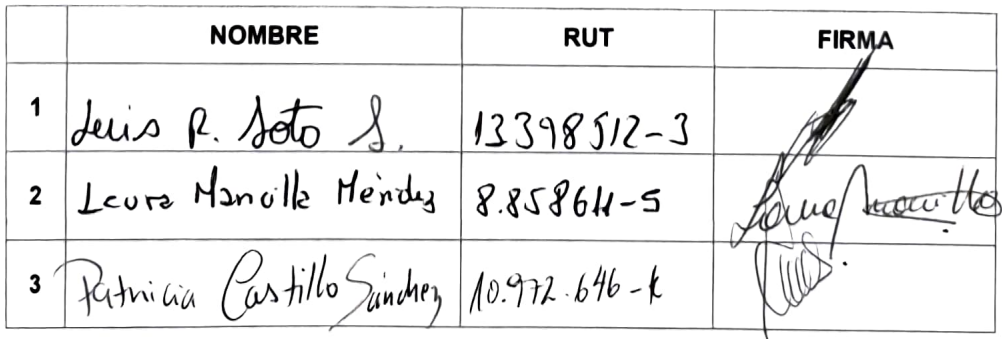 NOMBRE RUT FIRMA
1 Luis R. Soto S. 13398512-3
2 Laura Mancilla Méndez 8.858611-5 Laura Mancilla
3 Patricia Castillo Sánchez 10.972.646-k